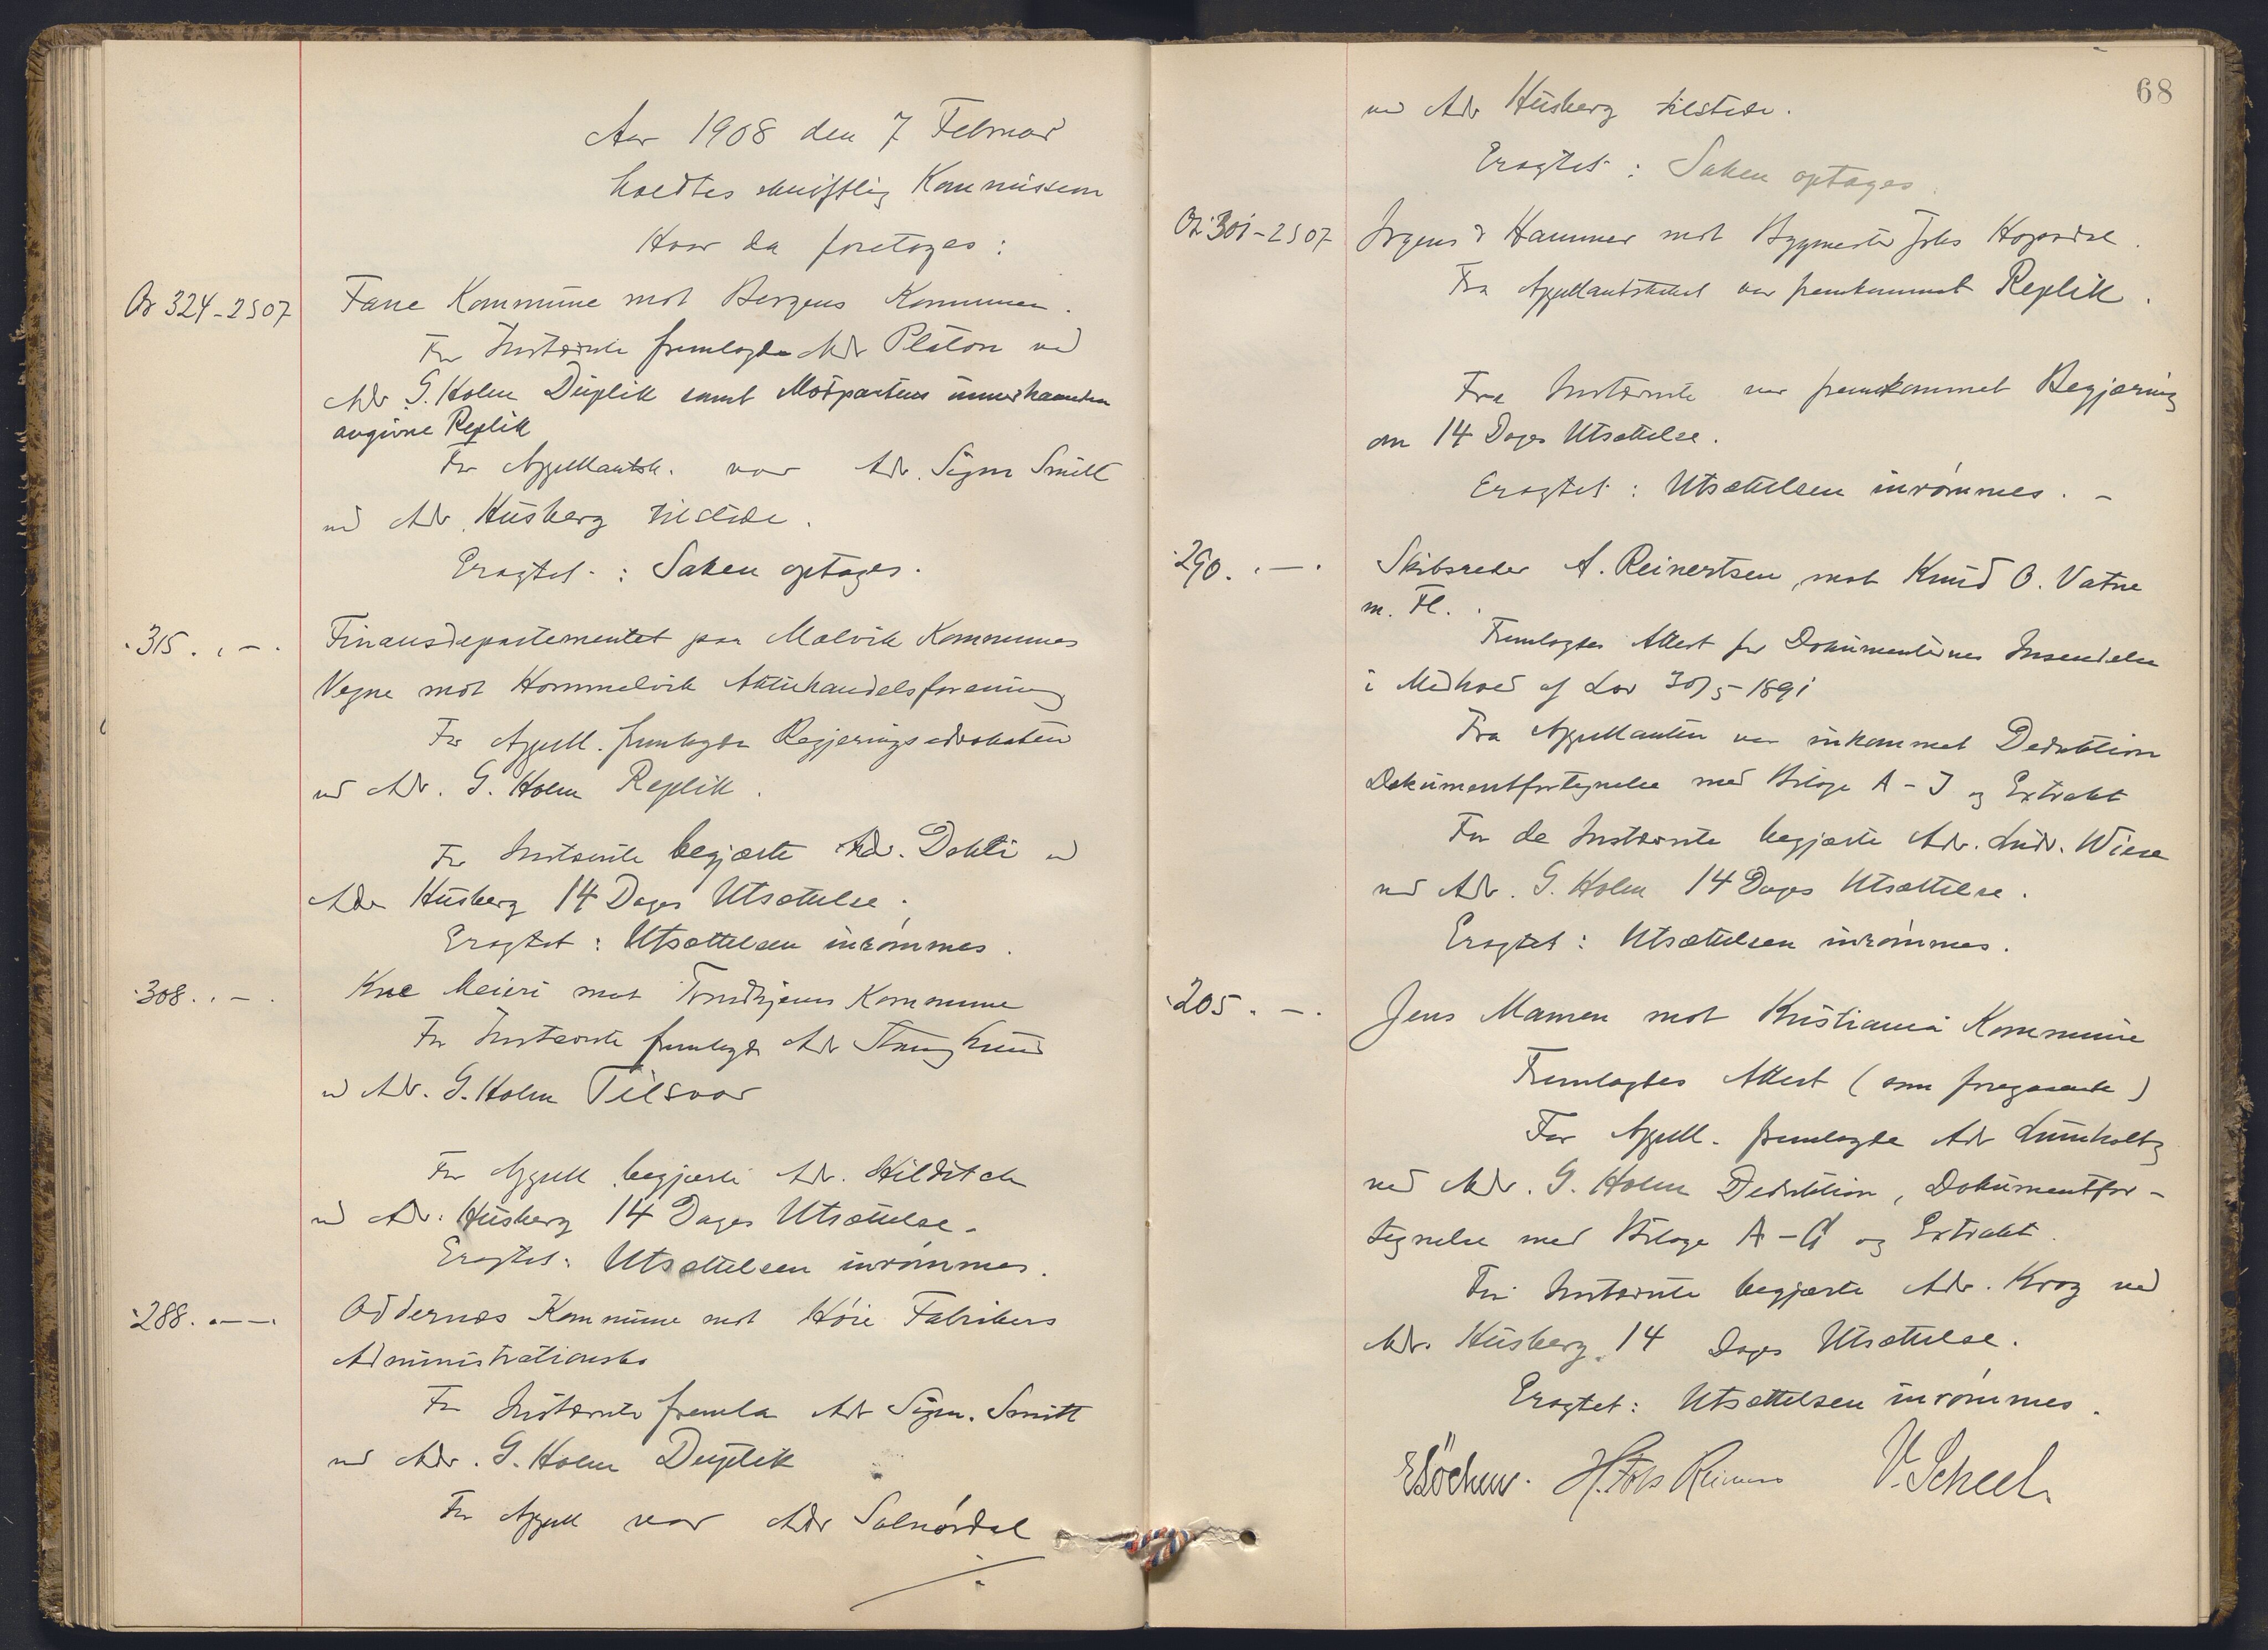 Aar 1908 den 7 Februar
holdtes skriftlig Kommission
Hvor da foretoges:
Or 324-2507 Fane Kommune mot Bergens Kommune.
For Instævnte fremlagde Adv Platou ved
Adv G. Holm Duplik samt Motpartens underhaanden
avgivne Replik
For Appellantsk. var Adv. Sigm Smitt
ved Adv Husberg tilstede.
Eragtet: Saken optages.
315. . — . Finansdepartementet paa Malvik Kommunes
Vegne mot Hommelvik Aktiehandelsforening
For Appell. fremlagde Regjeringsadvokaten
ved Adv. G. Holm Replik.
For Instævnte begjærte Adv. Dahl ved
Adv Husberg 14 Dages Utsættelse.
Eragtet: Utsættelsen inrømmes.
308. . — . Meieri mot Trondhjems Kommune
For Instævnte fremlagde Adv
ved Adv. G. Holm Tilsvar
For Appell begjærte Adv. Hilditch
ved Adv. Husberg 14 Dages Utsættelse.
Eragtet: Utsættelsen inrømmes.
288. . — . Oddernes Kommune mot Høie Fabrikers
Administrationsbo
For Instævnte fremla Adv Sigm. Smitt
ved Adv. G. Holm Duplik
For Appell var Adv Solnørdal
68
ved Adv Husberg tilstede.
Eragtet: Saken optages.
Or 301-2507 Jrgens & Hammer mot Bygmester Johs Hopsdal.
Fra Appellantskabet var fremkommet Replik.
Fra Instævnte var fremkommet Begjæring
om 14 Dages Utsættelse.
Eragtet: Utsættelsen inrømmes. —
290. . — . Skibsreder A. Reinertsen mot Knud O. Vatne
m. Fl.
Fremlagdes Attest for Dokumenternes Insendelse
i Medhold af Lov 30/5-1891
Fra Appellanten var inkommet Deduktion
Dokumentfortegnelse med Bilage A-J og Extrakt
For de Instævnte begjærte Adv. Ludv. Wiese
ved Adv. G. Holm 14 Dages Utsættelse.
Eragtet: Utsættelsen inrømmes.
205. — . Jens Mamen mot Kristiania Kommune
Fremlagdes Attest (som foregaaende)
For Appell. fremlagde Adv Lumholtz
ved Adv. G. Holm Deduktion, Dokumentfor-
tegnelse med Bilage A-G og Extrakt.
For Instævnte begjærte Adv. Krog ved
Adv. Husberg 14 Dages Utsættelse.
Eragtet: Utsættelsen inrømmes.
H. Foss Reimers V. Scheel